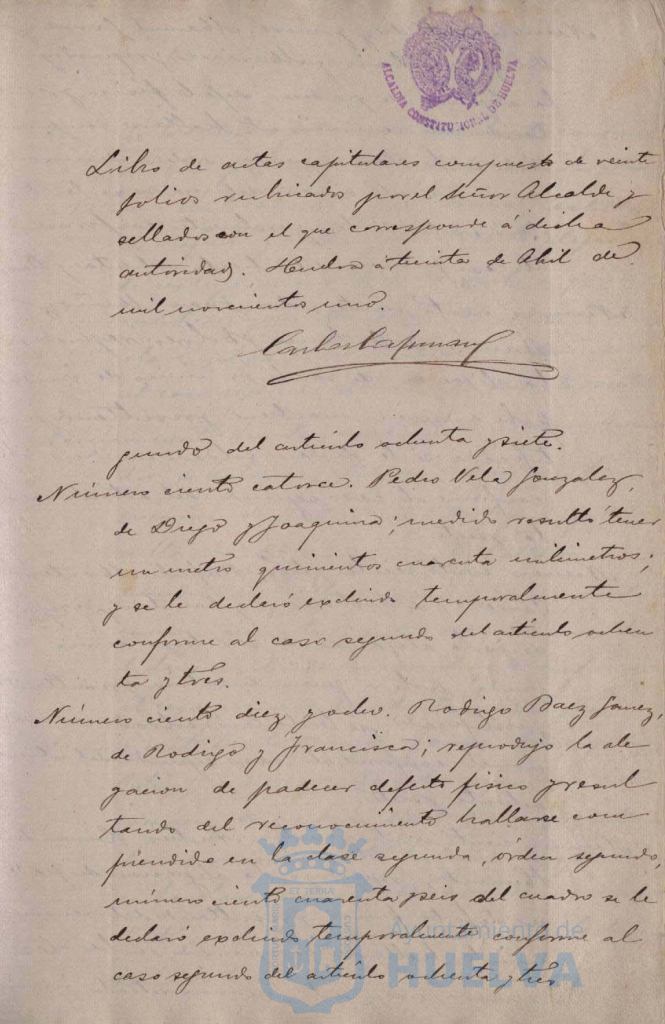 ALCALDIA CONSTITUCIONAL DE HUELVA
Libro de actas capitulares compuesto de veinte
folios rubricados por el Señor Alcalde y
sellados con el que corresponde á dicha
autoridad. Huelva á treinta de Abril de
mil novecientos uno.
gundo del artículo ochenta y siete.
Número ciento catorce. Pedro Vela Gonzalez,
de Diego y Joaquina; medido resultó tener
un metro quinientos cuarenta milimetros;
y se le declaró excluido temporalmente
conforme al caso segundo del artículo ochen
ta y tres.
Número ciento diez y ocho. Rodrigo Baez
de Rodrigo y Francisca; reprodujo la ale
gacion de padecer defecto fisico y resul
tando del reconocimiento hallarse com
prendido en la clase segunda, órden segundo,
número ciento cuarenta y seis del cuadro se le
declaró excluido temporalmente conforme al
caso segundo del artículo ochenta y tres
Ayuntamiento de
HUELVA